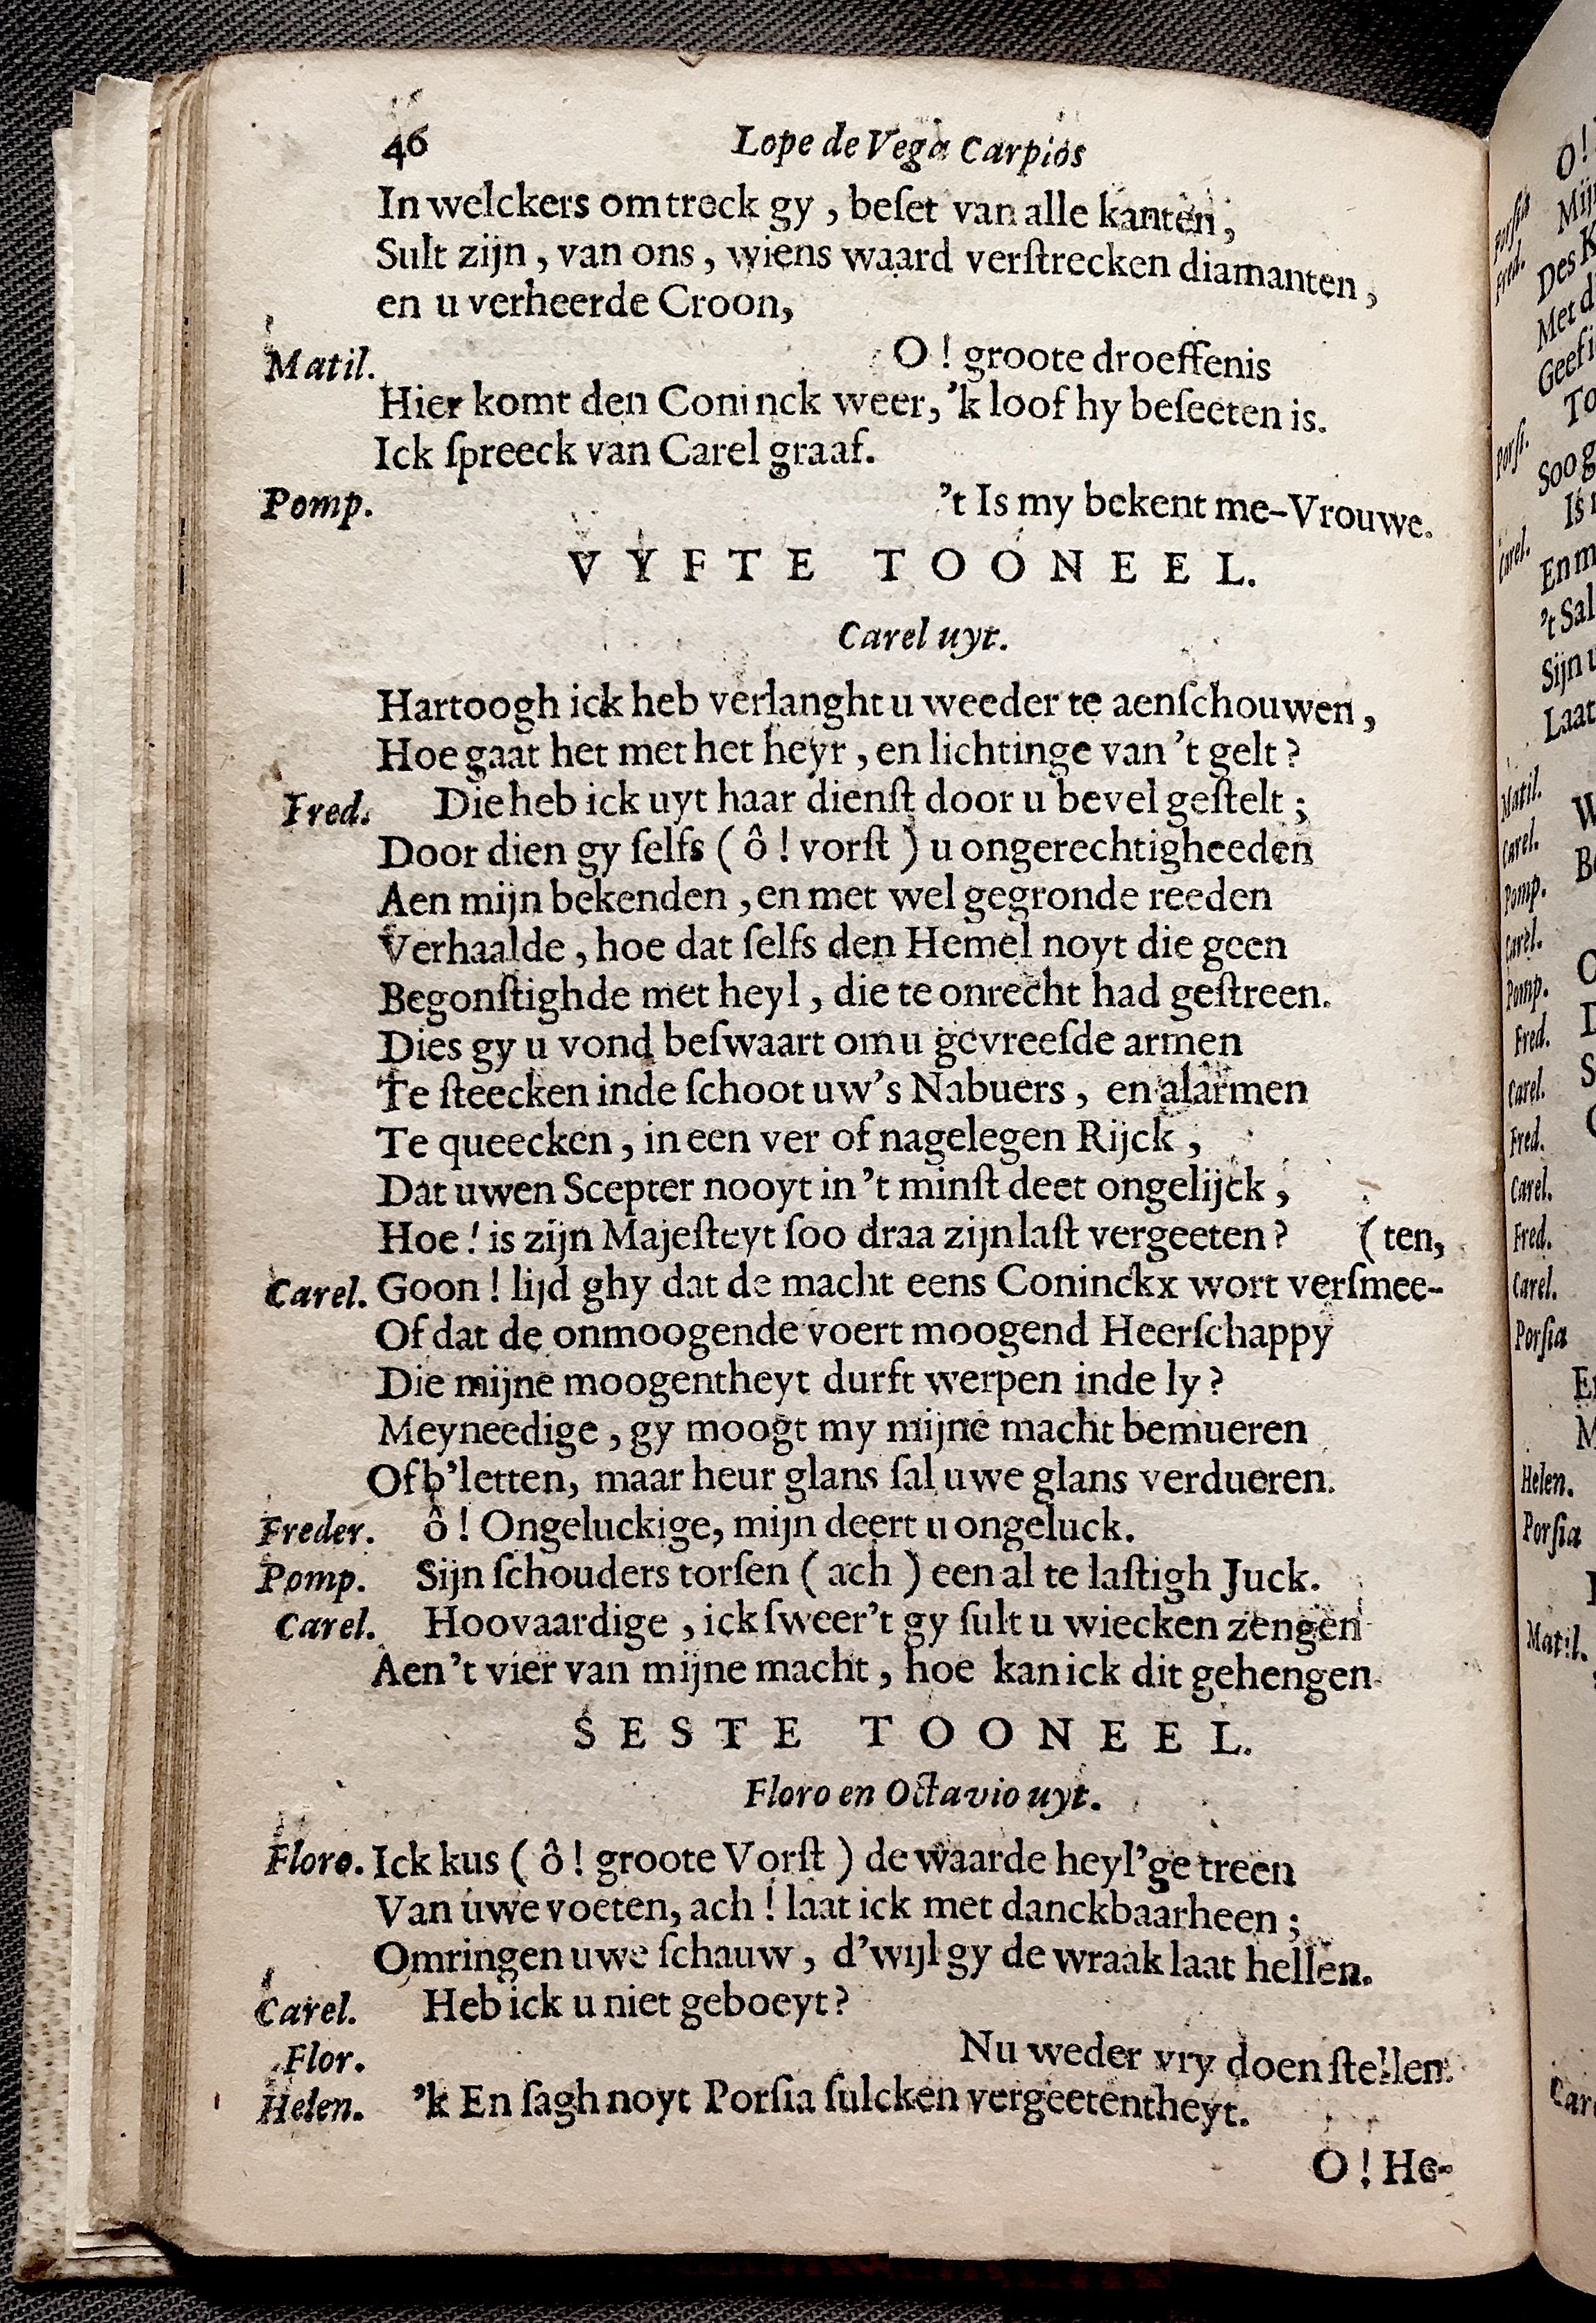 46 Lope de Vega Carpios
In welckers omtreck gy, beſet van alle kanten;
Sult zijn, van ons, wiens waard verſtrecken diamanten,
en u verheerde Croon,
Matil. O! groote droeffenis
Hier komt den Coninck weer, 'k loof hy beſeeten is.
Ick ſpreeck van Carel graaf.
Pomp. 't Is my bekent me-Vrouwe.
VYFTE TOONEEL.
Carel uyt.
Hartoogh ick heb verlanght u weeder te aenſchouwen,
Hoe gaat het met het heyr, en lichtinge van 't gelt?
Fred. Die heb ick uyt haar dienſt door u bevel geſtelt;
Door dien gy ſelfs (ô! vorſt) u ongerechtigheeden
Aen mijn bekenden, en met wel gegronde reeden
Verhaalde, hoe dat ſelfs den Hemel noyt die geen
Begonſtighde met heyl, die te onrecht had geſtreen.
Dies gy u vond beſwaart om u gevreeſde armen
Te ſteecken inde ſchoot uw's Nabuers, en alarmen
Te queecken, in een ver of nagelegen Rijck,
Dat uwen Scepter nooyt in 't minſt deet ongelijck,
Hoe! is zijn Majeſteyt ſoo draa zijn laſt vergeeten? (ten,
Carel. Goon! lijd ghy dat de macht eens Coninckx wort verſmee-
Of dat de onmoogende voert moogend Heerſchappy
Die mijne moogentheyt durft werpen inde ly?
Meyneedige, gy moogt my mijne macht bemueren
Of b'letten, maar heur glans ſal uwe glans verdueren.
Freder. ô! Ongeluckige, mijn deert u ongeluck.
Pomp. Sijn ſchouders torſen (ach) een al te laſtigh Juck.
Carel. Hoovaardige, ick ſweer't gy ſult u wiecken zengen
Aen 't vier van mijne macht, hoe kan ick dit gehengen
SESTE TOONEEL.
Floro en Octavio uyt.
Floro. Ick kus (ô! groote Vorſt) de waarde heyl'ge treen
Van uwe voeten, ach! laat ick met danckbaarheen;
Omringen uwe ſchauw, d'wijl gy de wraak laat hellen.
Carel. Heb ick u niet geboeyt?
Flor. Nu weder vry doen ſtellen.
Helen. 'k En ſagh noyt Porſia ſulcken vergeetentheyt.
O! He-